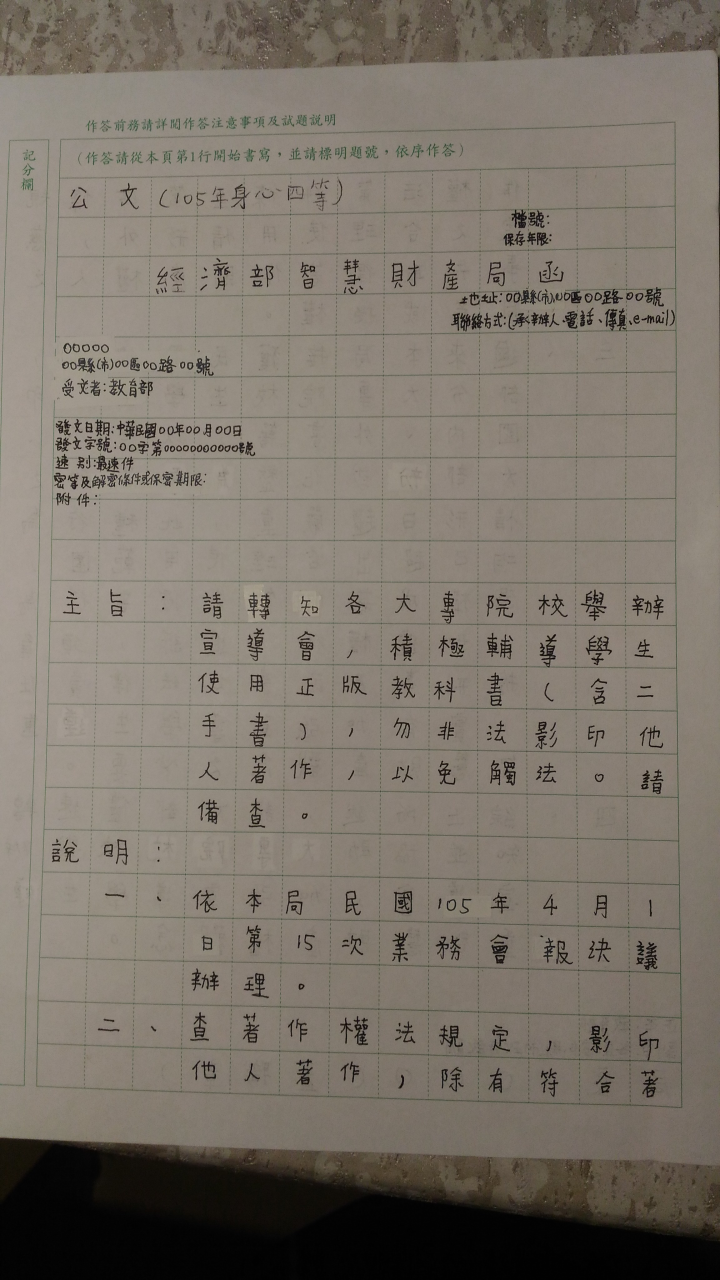 作答前務請詳閱作答注意事項及試題說明
記分欄
(作答請從本頁第1行開始書寫，並請標明題號，依序作答)
公文(105年身心四等)
檔號:
保存年限:
經濟部智慧財產局函
地址:00縣(市)00區00路00號
聯絡方式:(承辦人、電話、傳真、e-mail)
00000
00縣(市)00區00路00號
受文者:教育部
發文日期:中華民國00年00月00日
發文字號:00字第0000000000號
速別:最速件
密等及解密條件或保密期限:
附件:
主旨:請轉知各大專院校舉辦
宣導會,積極輔導學生
使用正版教科書(含二
手書),勿非法影印他
人著作,以免觸法。請
備查。
說明:
一、依本局民國105年4月1
日第15次業務會報決議
辦理。
二、查著作權法規定,影印
他人著作,除有符合著